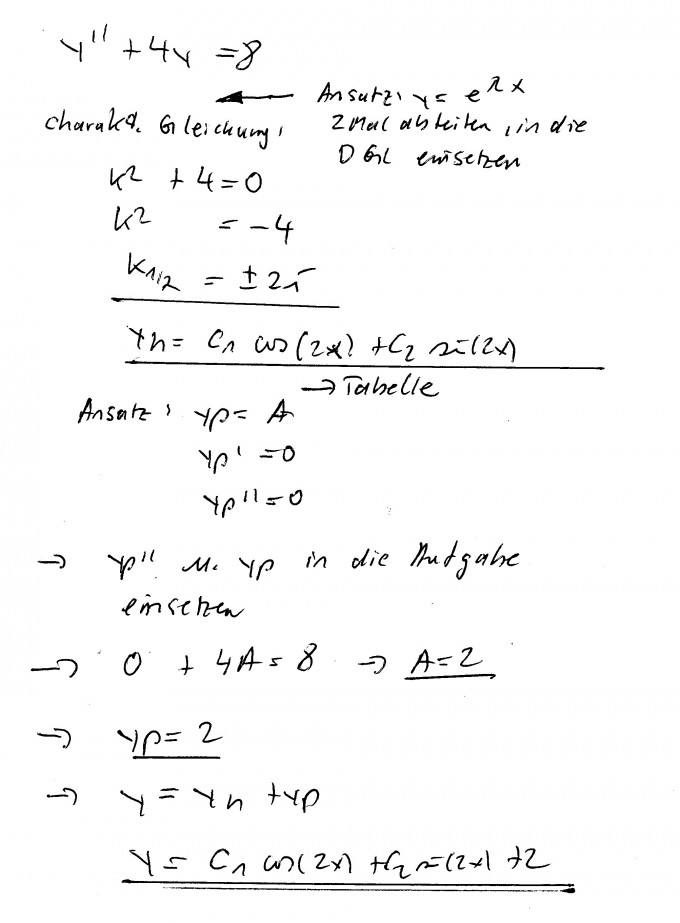 y'' + 4y = 8
Ansatz: y = e^λx
charakt. Gleichung:
2 Mal ableiten, in die
DGL einsetzen
k² + 4 = 0
k² = -4
k1/2 = ± 2i
yh = C1 cos(2x) + C2 sin(2x)
→ Tabelle
Ansatz: yp = A
yp' = 0
yp'' = 0
→ yp'' u. yp in die Aufgabe
einsetzen
→ 0 + 4A = 8 → A = 2
→ yp = 2
→ y = yh + yp
y = C1 cos(2x) + C2 sin(2x) + 2